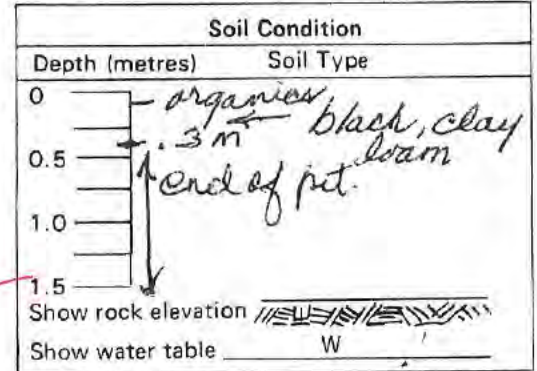 Soil Condition
Depth (metres) Soil Type
0 organics
.3 m black, clay loam
0.5
end of pit.
1.0
1.5
Show rock elevation
Show water table W